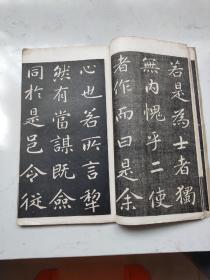 若是為士者獨
無内愧乎二使
者作而曰是余
心也若所言犂
然有當謀既僉
同於是邑令從